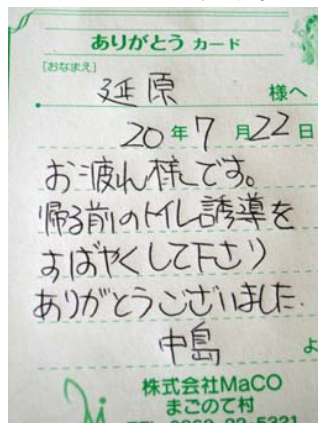 ありがとう カード
[おなまえ]
延原 様へ
20年7月22日
お疲れ様です。
帰る前のトイレ誘導を
すばやくして下さり
ありがとうございました.
中島 よ
株式会社MaCO
まごのて村